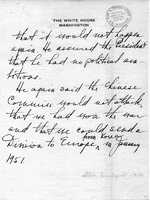 THE WHITE HOUSE
WASHINGTON
that it would not happen
again. He assured the President
that he had no political am-
bitions.
He again said the Chinese
Commies would not attack,
that we had won the war
and that we could send a
Division to Europe from Korea in January
1951.